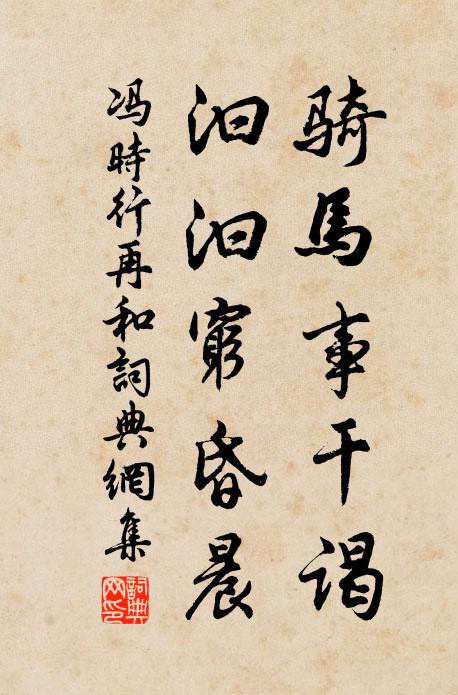 騎馬事干謁
汩汩窮昏晨
馮時行再和詞典網集
詞典网印